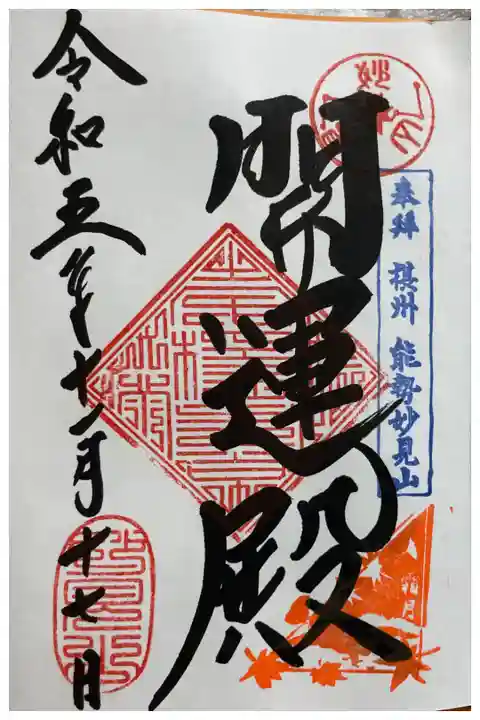 奉拝 摂州 能勢妙見山
開運殿
霜月
令和五年十一月十七日